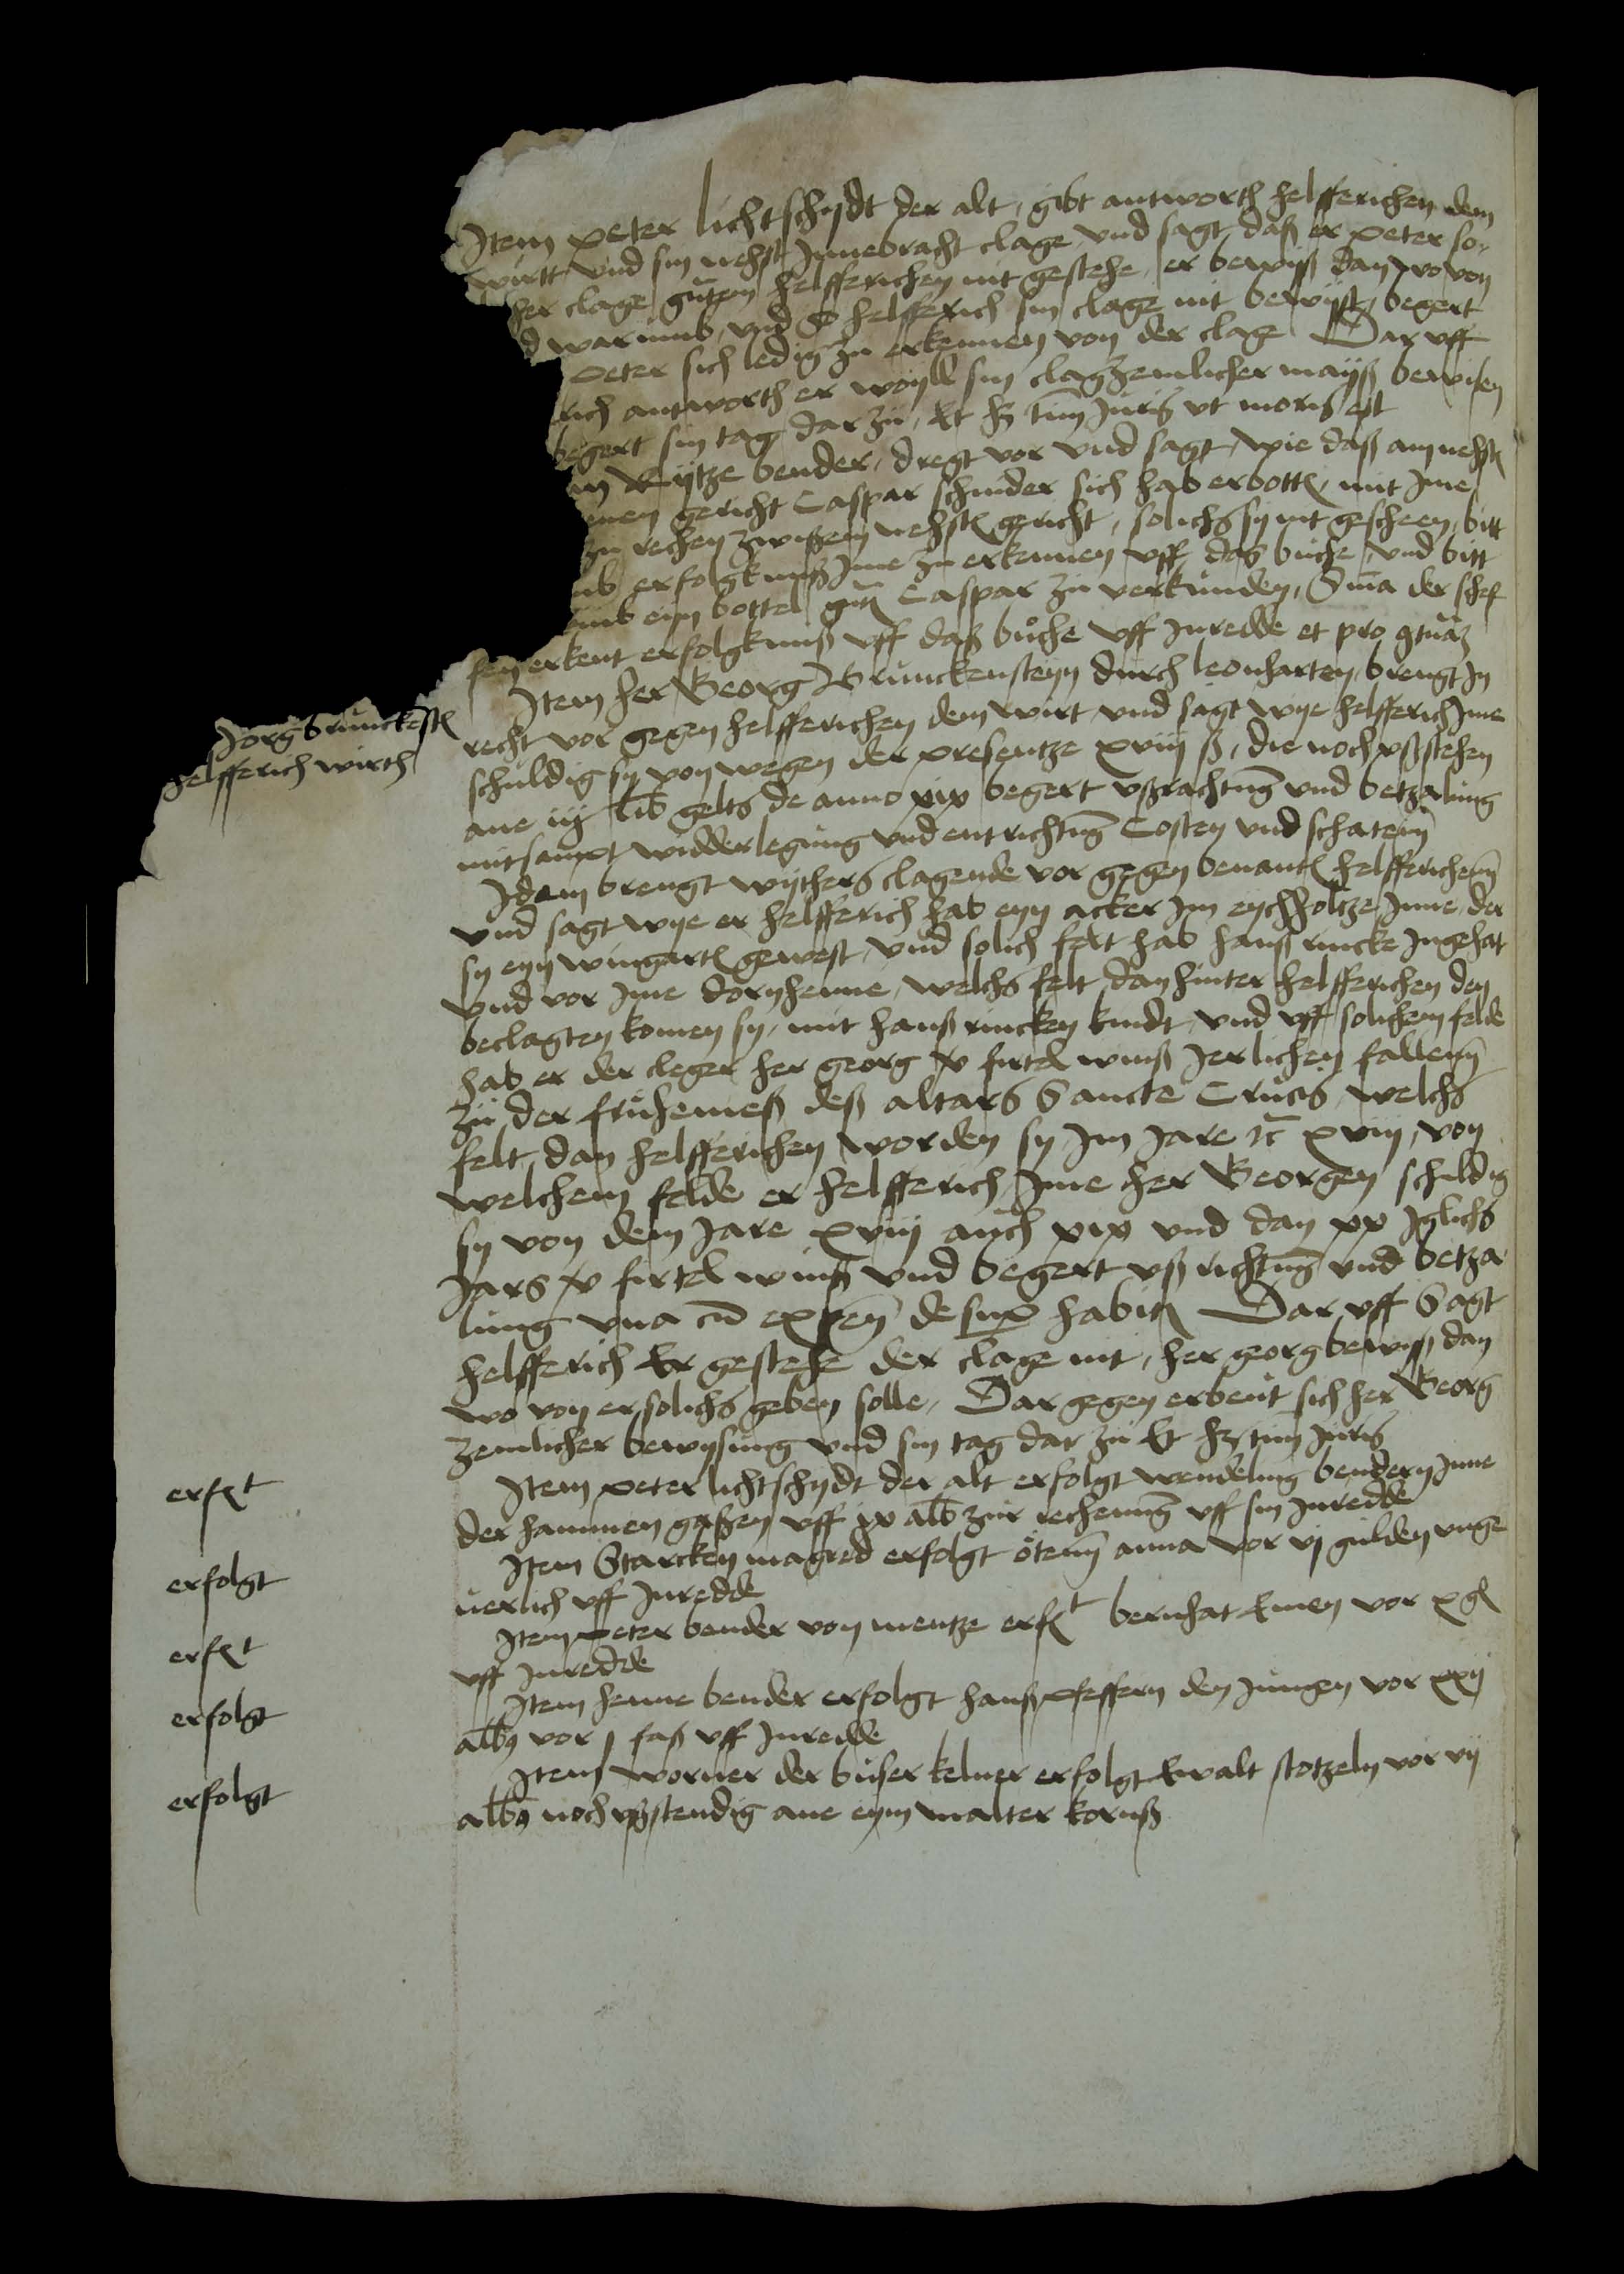 Item peter lichtschydt der alt, gibt antworth helfferichen dem
wirtt und sin nehst Innebracht clage und sagt, daß er peter so-
her clage gutem helfferichen nit gestehe, er bewyß dan wo von
d warumb und so helfferich sin clage nit bewyst, begert
peter sich ledig zu erkennen von der clage Dar uff
rich antworth er woylle sin clag zemlicher mayß bewisen
begert sin tag dar zu, et hz tim Juris ut moris est
Rytze bender, dregt vor und sagt, wie daß am nehsten
nen gericht Caspar schnider sich hab erbotten, mit Ime
zu rechen zwußem nehsten gericht, solichs sy nit gescheen, bitt
umb erfolgknuß Ime zu erkennen uff das buche und bitt
umb eyn bottel gutem Caspar zu verkunden, Sma der schef
fen erkent erfolgknuß uff daß buche uff Inredde et pro
Item her Georg Brunckensteyn durch leonharten, brengt In
Jorg Brunckesten
recht vor gegen helfferichen dem wirt und sagt wye helfferich Ime
helfferich wirth
schuldig sy von wegen der presentze xviij ß, die noch ußstehen
ane iij lib gelts de anno xix begert ußrachtung und betzalung
mitsampt widderlegung und entrichtung Costen und schaten
Idem brengt wythers clagende vor gegen benanten helfferichen
und sagt wye er helfferich hab eyn acker Im eychholtze Inne, der
sy eyn wingarten gewest, und solich felt hab hanß rincke Ingehat
und vor Ime dornhenne, welchs felt dan hinter helfferichen den
beclagten komen sy, mit hanß rincken kindt, und uff solichem felde
hab er der cleger her georg v firtel winß Jerlichen fallenn
zu der fruhemeß deß altars Sancte Crucis, welchs
felt dan helfferichen worden sy Im Jare xviij, von
welchem felde er helfferich Ime her Georgen schuldig
sy von dem Jare xviij auch xix und dan xx Iglichs
Jars v firtel winß und begert ußrichtung und betza
lung una cu expen desup habit Dar uff Sagt
helfferich Er gestehe der clage nit, her georg bewyß dan
wo von er solichs geben solle, Dar gegen erbeut sich her Georg
zemlicher bewysung und sin tag dar zu Et hz tim Juris
erft
Item peter lichtschydt der alt erfolgt wendeling bendern Inne
der hammen gaßen uff ix alb zur rechenung uff sin Inredde
erfolgt
Item Starcken magred erfolgt ötenn anna vor vj gulden unge
uerlich uff Inredde
erft
Item peter bender von mentze erft bernhat Emen vor x gl
uff Inredde
erfolgt
Item henne bender erfolgt hanß pfeffern den Jungen vor xxij
albus vor j faß uff Inredde
erfolgt
Item worner der buser kelner erfolgt Ewalt stotzeln vor vij
albus noch ußstendig ane eym malter kornß